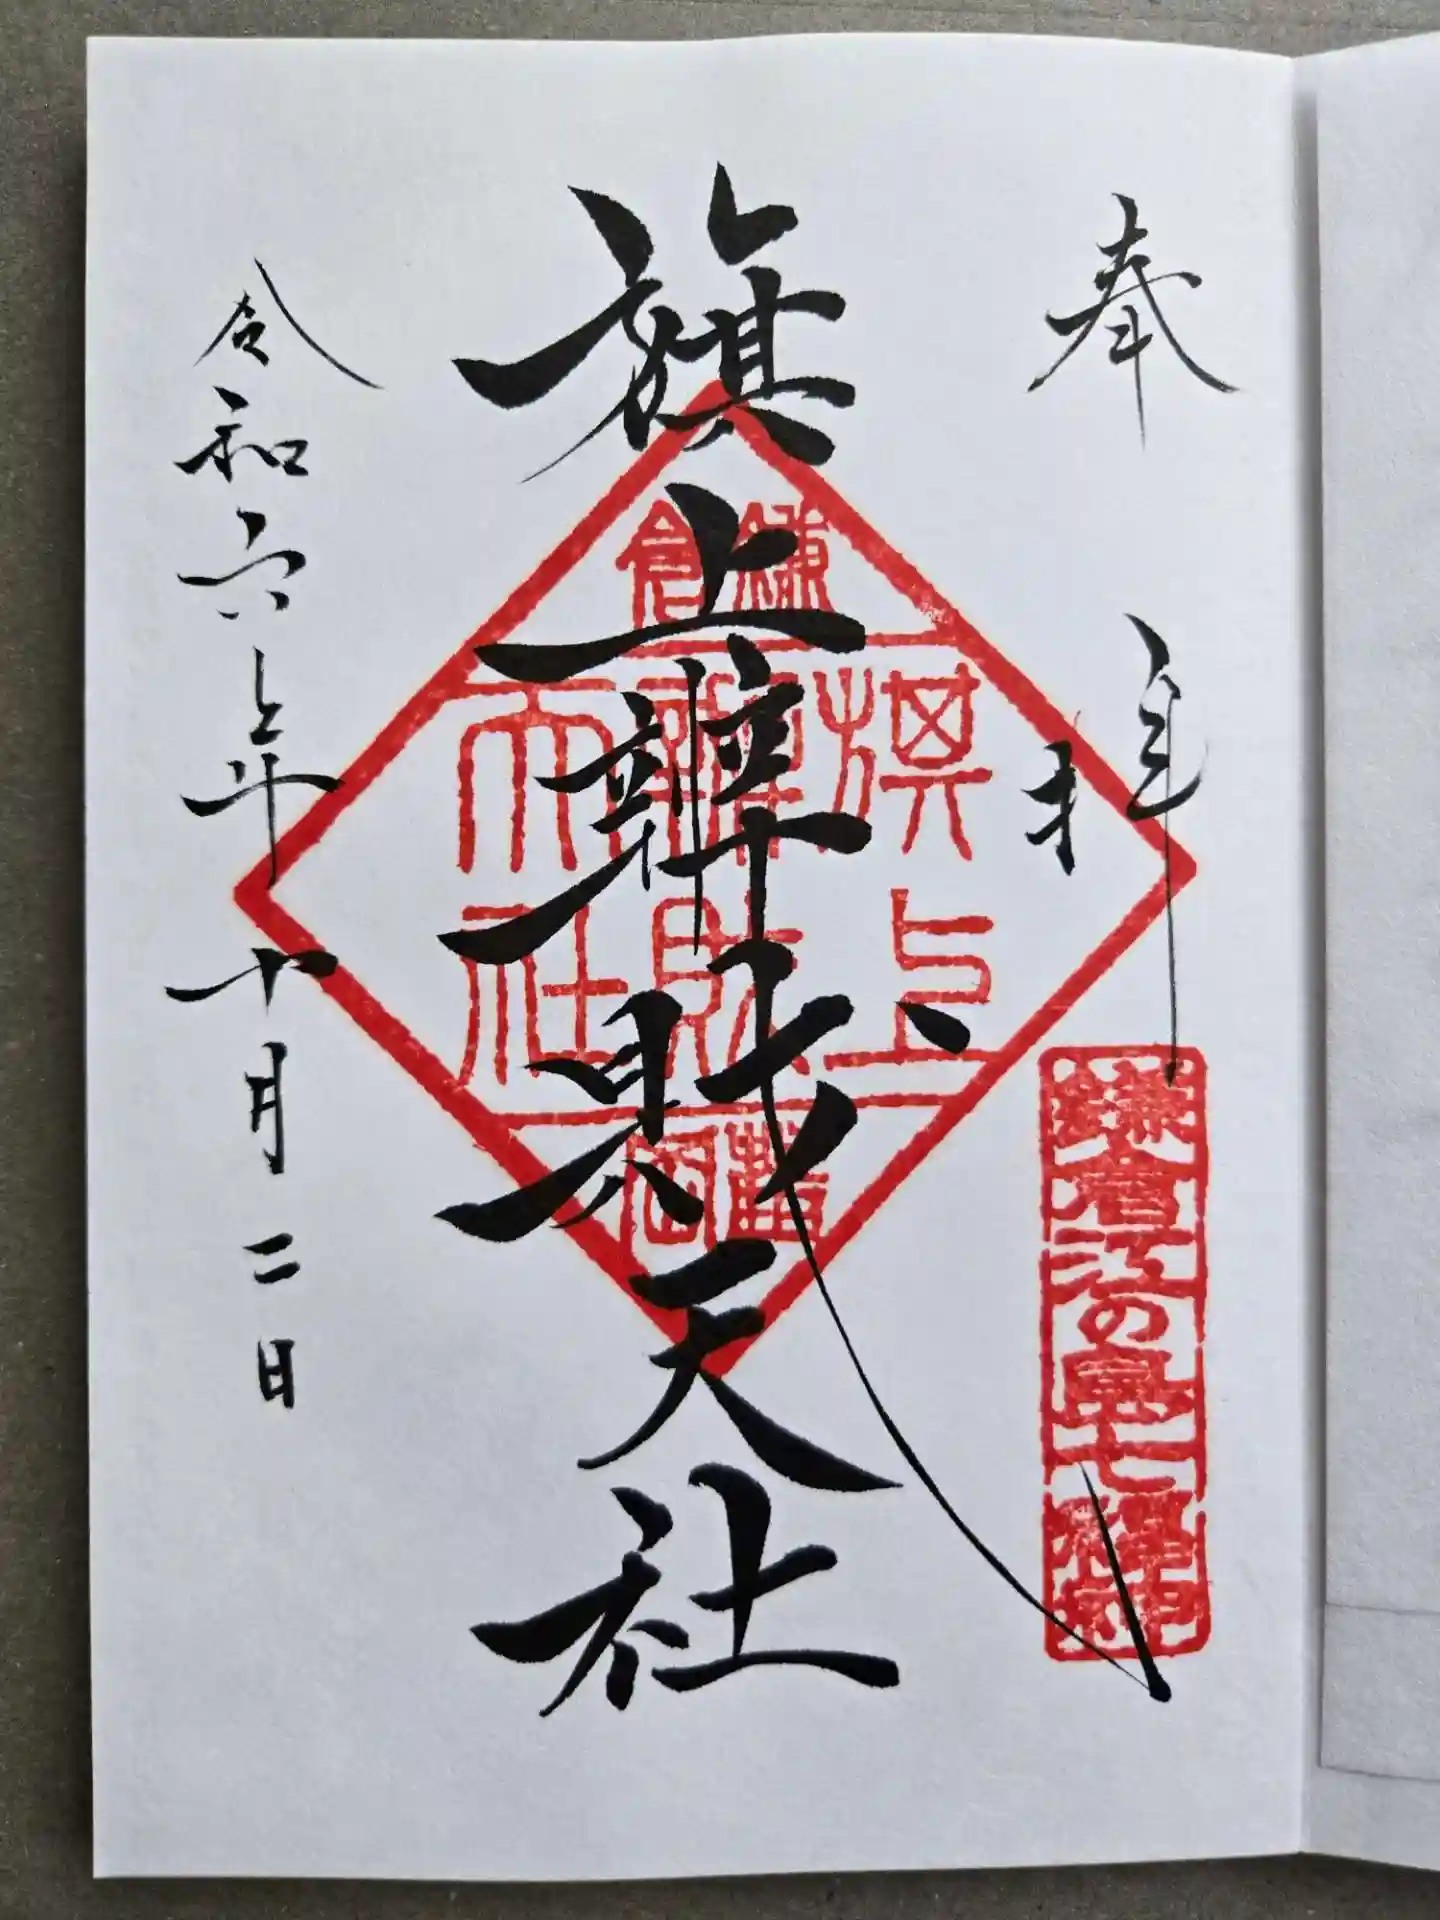 奉拝
鎌倉江の島七福神
旗上辨財天社
鎌倉
旗上
辨財
天社
鶴岡
令和六年十月二日